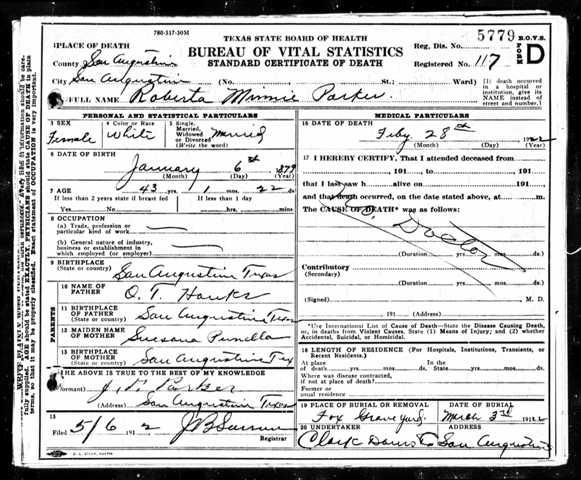 780-317-30M
TEXAS STATE BOARD OF HEALTH
5779 B.O.V.S.
1 PLACE OF DEATH
BUREAU OF VITAL STATISTICS
Reg. Dis. No.
FORM D
County San Augustine
STANDARD CERTIFICATE OF DEATH
Registered No. 117
City San Augustine (No. St.; Ward)
[If death occurred in a hospital or institution, give its NAME instead of street and number.]
2 FULL NAME Roberta Minnie Parker
PERSONAL AND STATISTICAL PARTICULARS
3 SEX Female
4 Color or Race White
5 Single, Married, Widowed or Divorced (Write the word) Married
6 DATE OF BIRTH
January 6th 1879
(Month) (Day) (Year)
7 AGE 43 yrs. 1 mos. 22 ds.
If less than 2 years state if breast fed
If less than 1 day
Yes No hrs. min.
8 OCCUPATION
(a) Trade, profession or particular kind of work
(b) General nature of industry, business or establishment in which employed (or employer)
9 BIRTHPLACE
(State or country) San Augustine Texas
PARENTS
10 NAME OF FATHER O. T. Hanks
11 BIRTHPLACE OF FATHER
(State or country) San Augustine Texas
12 MAIDEN NAME OF MOTHER Susana
13 BIRTHPLACE OF MOTHER
(State or country) San Augustine Tex
14 THE ABOVE IS TRUE TO THE BEST OF MY KNOWLEDGE
Informant Parker
(Address) San Augustine Texas
15
Filed 5/6 192
Registrar
MEDICAL PARTICULARS
16 DATE OF DEATH
Feby 28th, 1922
(Month) (Day) (Year)
17 I HEREBY CERTIFY, That I attended deceased from
, 191 , to , 191 ,
that I last saw h alive on , 191 ,
and that death occurred, on the date stated above, at m.
The CAUSE OF DEATH* was as follows:
Doctor
(Duration) yrs. mos. ds.
Contributory
(Secondary)
(Duration) yrs. mos. ds.
(Signed) M. D.
, 191 (Address)
*Use International List of Cause of Death—State the Disease Causing Death, or, in deaths from Violent Causes, State (1) Means of Injury; and (2) whether Accidental, Suicidal, or Homicidal.
18 LENGTH OF RESIDENCE (For Hospitals, Institutions, Transients, or Recent Residents.)
At place of death yrs. mos. ds. State yrs. mos. ds.
Where was disease contracted, if not at place of death?
Former or usual residence
19 PLACE OF BURIAL OR REMOVAL
DATE OF BURIAL
Fox Grave Yard, March 3rd 1922
20 UNDERTAKER
ADDRESS
Clark Downs Co San Augustine